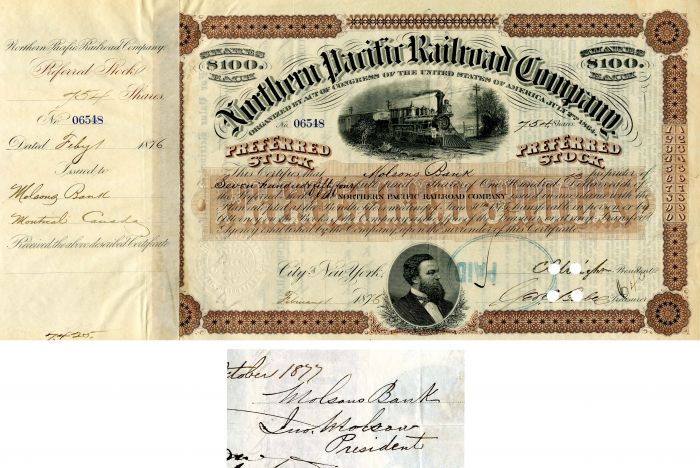 Northern Pacific Railroad Company.
Preferred Stock
754 Shares.
No. 06548
Dated Feby 1 1876
Issued to
Molsons Bank
Montreal Canada
Received, the above described Certificate
SHARES
$100.
EACH
SHARES
$100.
EACH
Northern Pacific Railroad Company
ORGANIZED BY ACT OF CONGRESS OF THE UNITED STATES OF AMERICA JULY 2ND 1864.
No. 06548
754 Shares
PREFERRED
STOCK
PREFERRED
STOCK
This Certifies that Molsons Bank is proprietor of
Seven hundred fifty four full paid Shares of One Hundred Dollars each of
the Preferred Stock of the NORTHERN PACIFIC RAILROAD COMPANY
Agency established by the Company, upon the surrender of this Certificate.
City of New York,
February 1 1876
PAID
President
Treasurer
October 1877
Molsons Bank
Jno. Molson
President